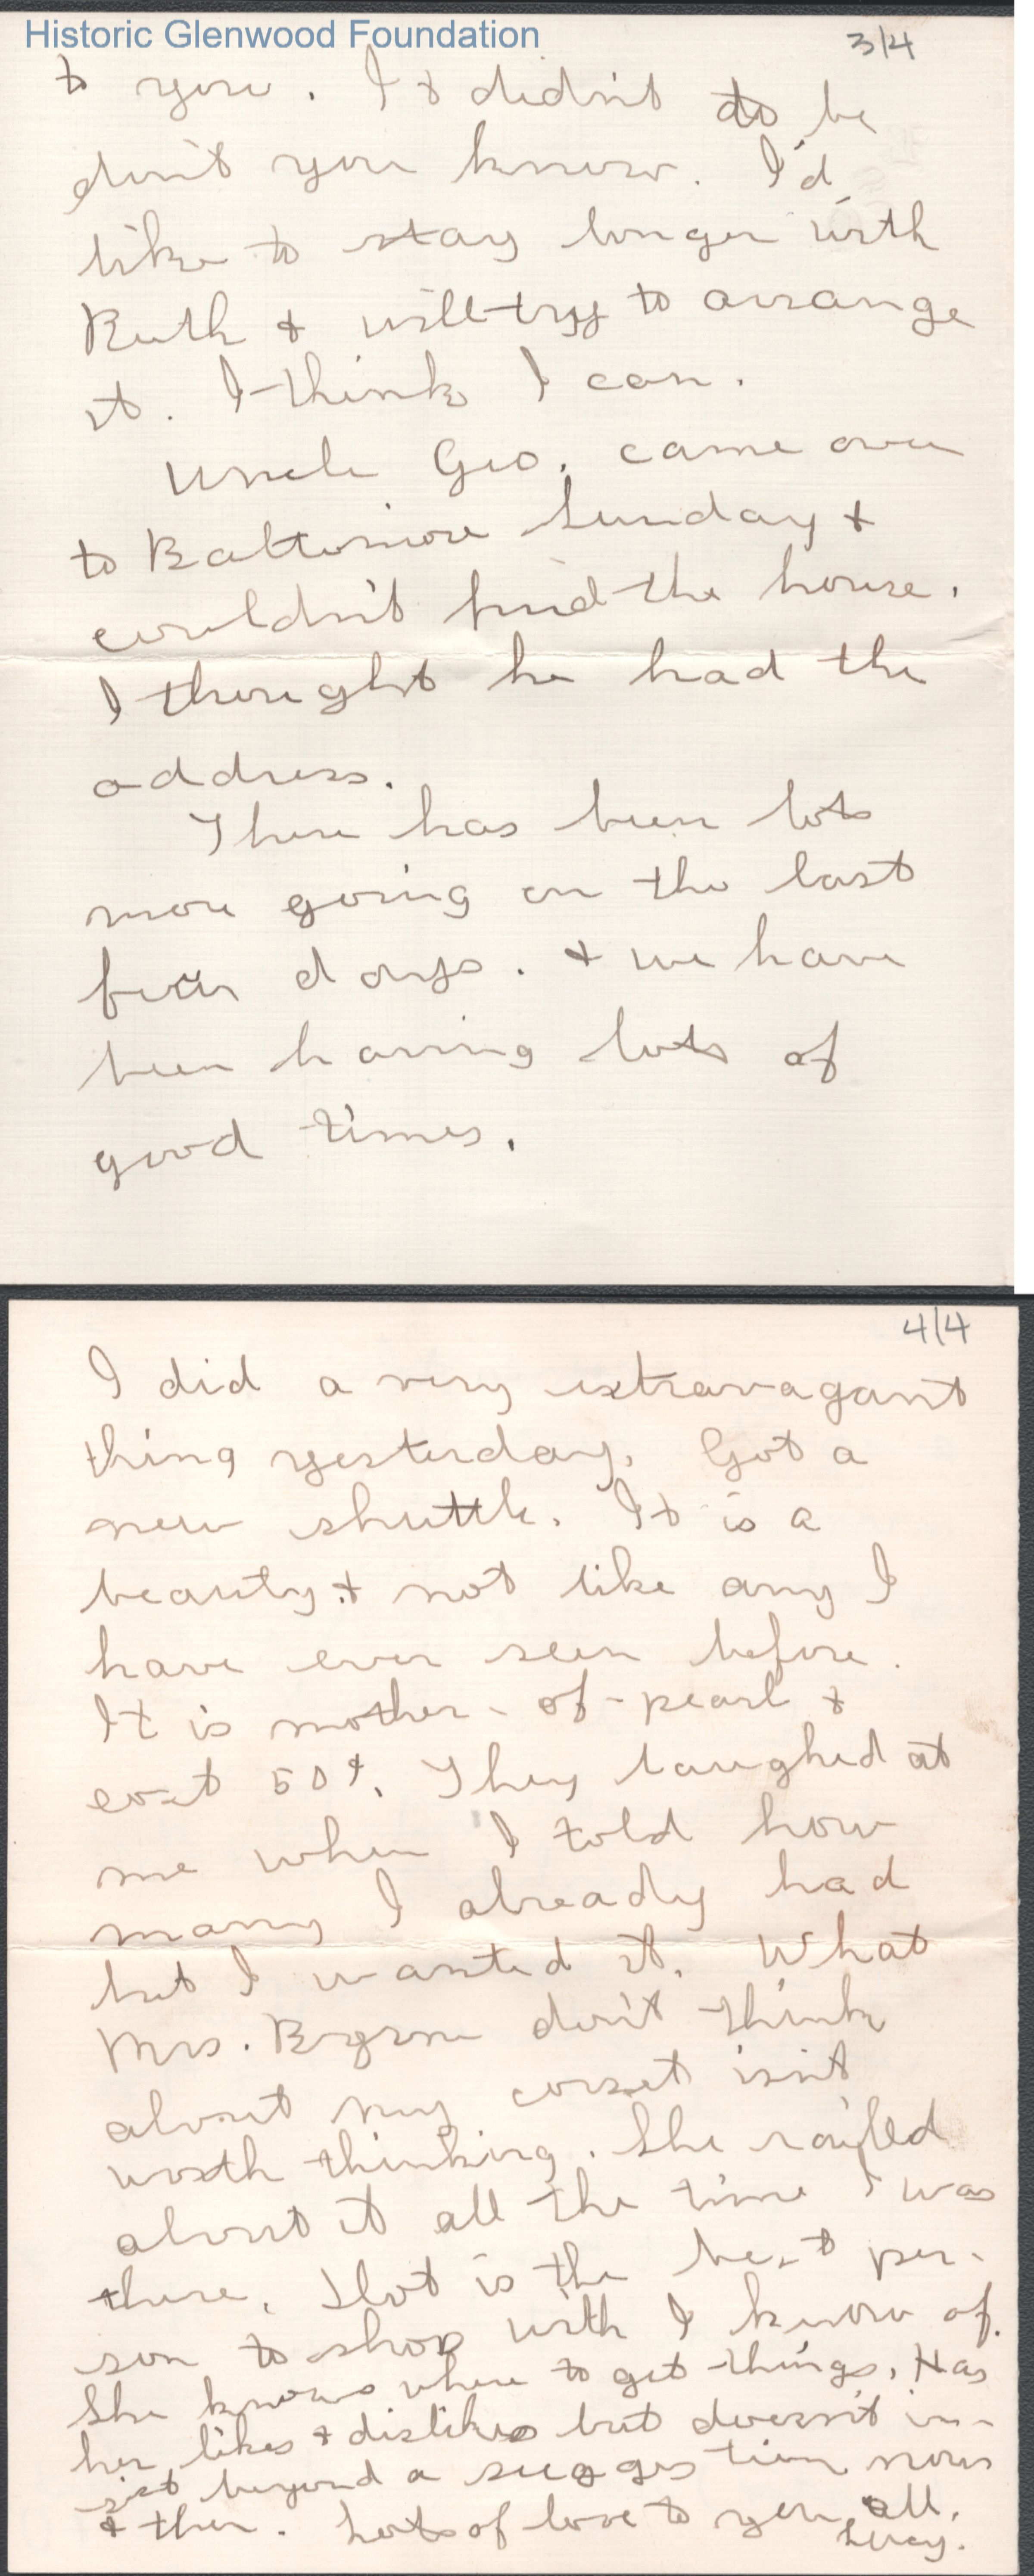 Historic Glenwood Foundation
3/4
to you. It didn't do to be
don't you know. I'd
like to stay longer with
Ruth & will try to arrange
it. I think I can.
Uncle Geo. came over
to Baltimore Sunday &
couldn't find the house.
I thought he had the
address.
There has been lots
more going on the last
few days. & we have
been having lots of
good times.
4/4
I did a very extravagant
thing yesterday. Got a
new shuttle. It is a
beauty & not like any I
have ever seen before.
It is mother-of-pearl &
cost 50¢. They laughed at
me when I told how
many I already had
but I wanted it. What
Mrs. Byrne don't think
about my corset isn't
worth thinking. She
about it all the time I was
there. is the best per-
son to shop with I know of.
She knows where to get things. Has
her likes & dislikes but doesn't in-
sist beyond a suggestion now
& then. Lots of love to you all.
Lucy.